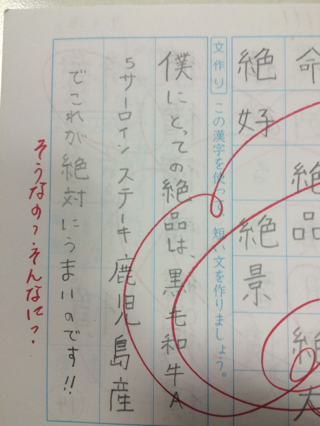 命絶品絶大
絶好絶景
文作り この漢字を使って、短い文を作りましょう。
僕にとっての絶品は、黒毛和牛A
5サーロインステーキ鹿児島産
でこれが絶対にうまいのです!!
そうなの?そんなに?